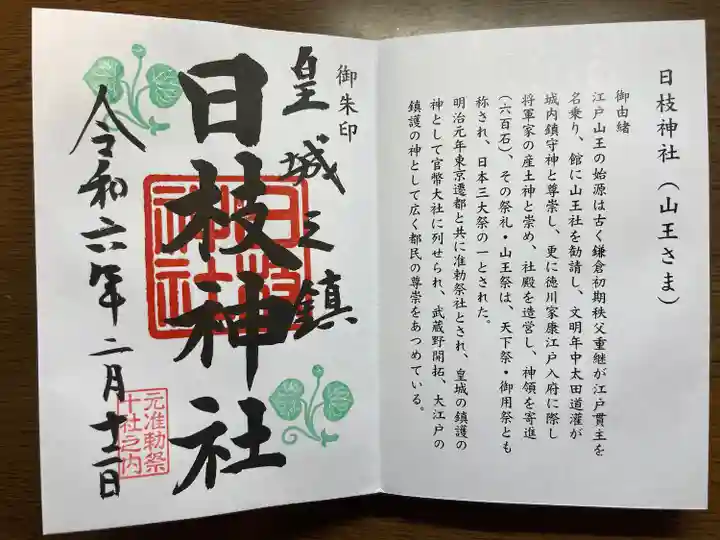 日枝神社（山王さま）
御由緒
江戸山王の始源は古く鎌倉初期秩父重継が江戸貫主を
名乗り、館に山王社を勧請し、文明年中太田道灌が
城内鎮守神と尊崇し、更に徳川家康江戸入府に際し
将軍家の産土神と崇め、社殿を造営し、神領を寄進
（六百石）、その祭礼・山王祭は、天下祭・御用祭とも
称され、日本三大祭の一とされた。
明治元年東京遷都と共に准勅祭社とされ、皇城の鎮護の
神として官幣大社に列せられ、武蔵野開拓、大江戸の
鎮護の神として広く都民の尊崇をあつめている。
御朱印
皇城之鎮
日枝神社
日枝
神社
令和六年二月十二日
元准勅祭
十社之内